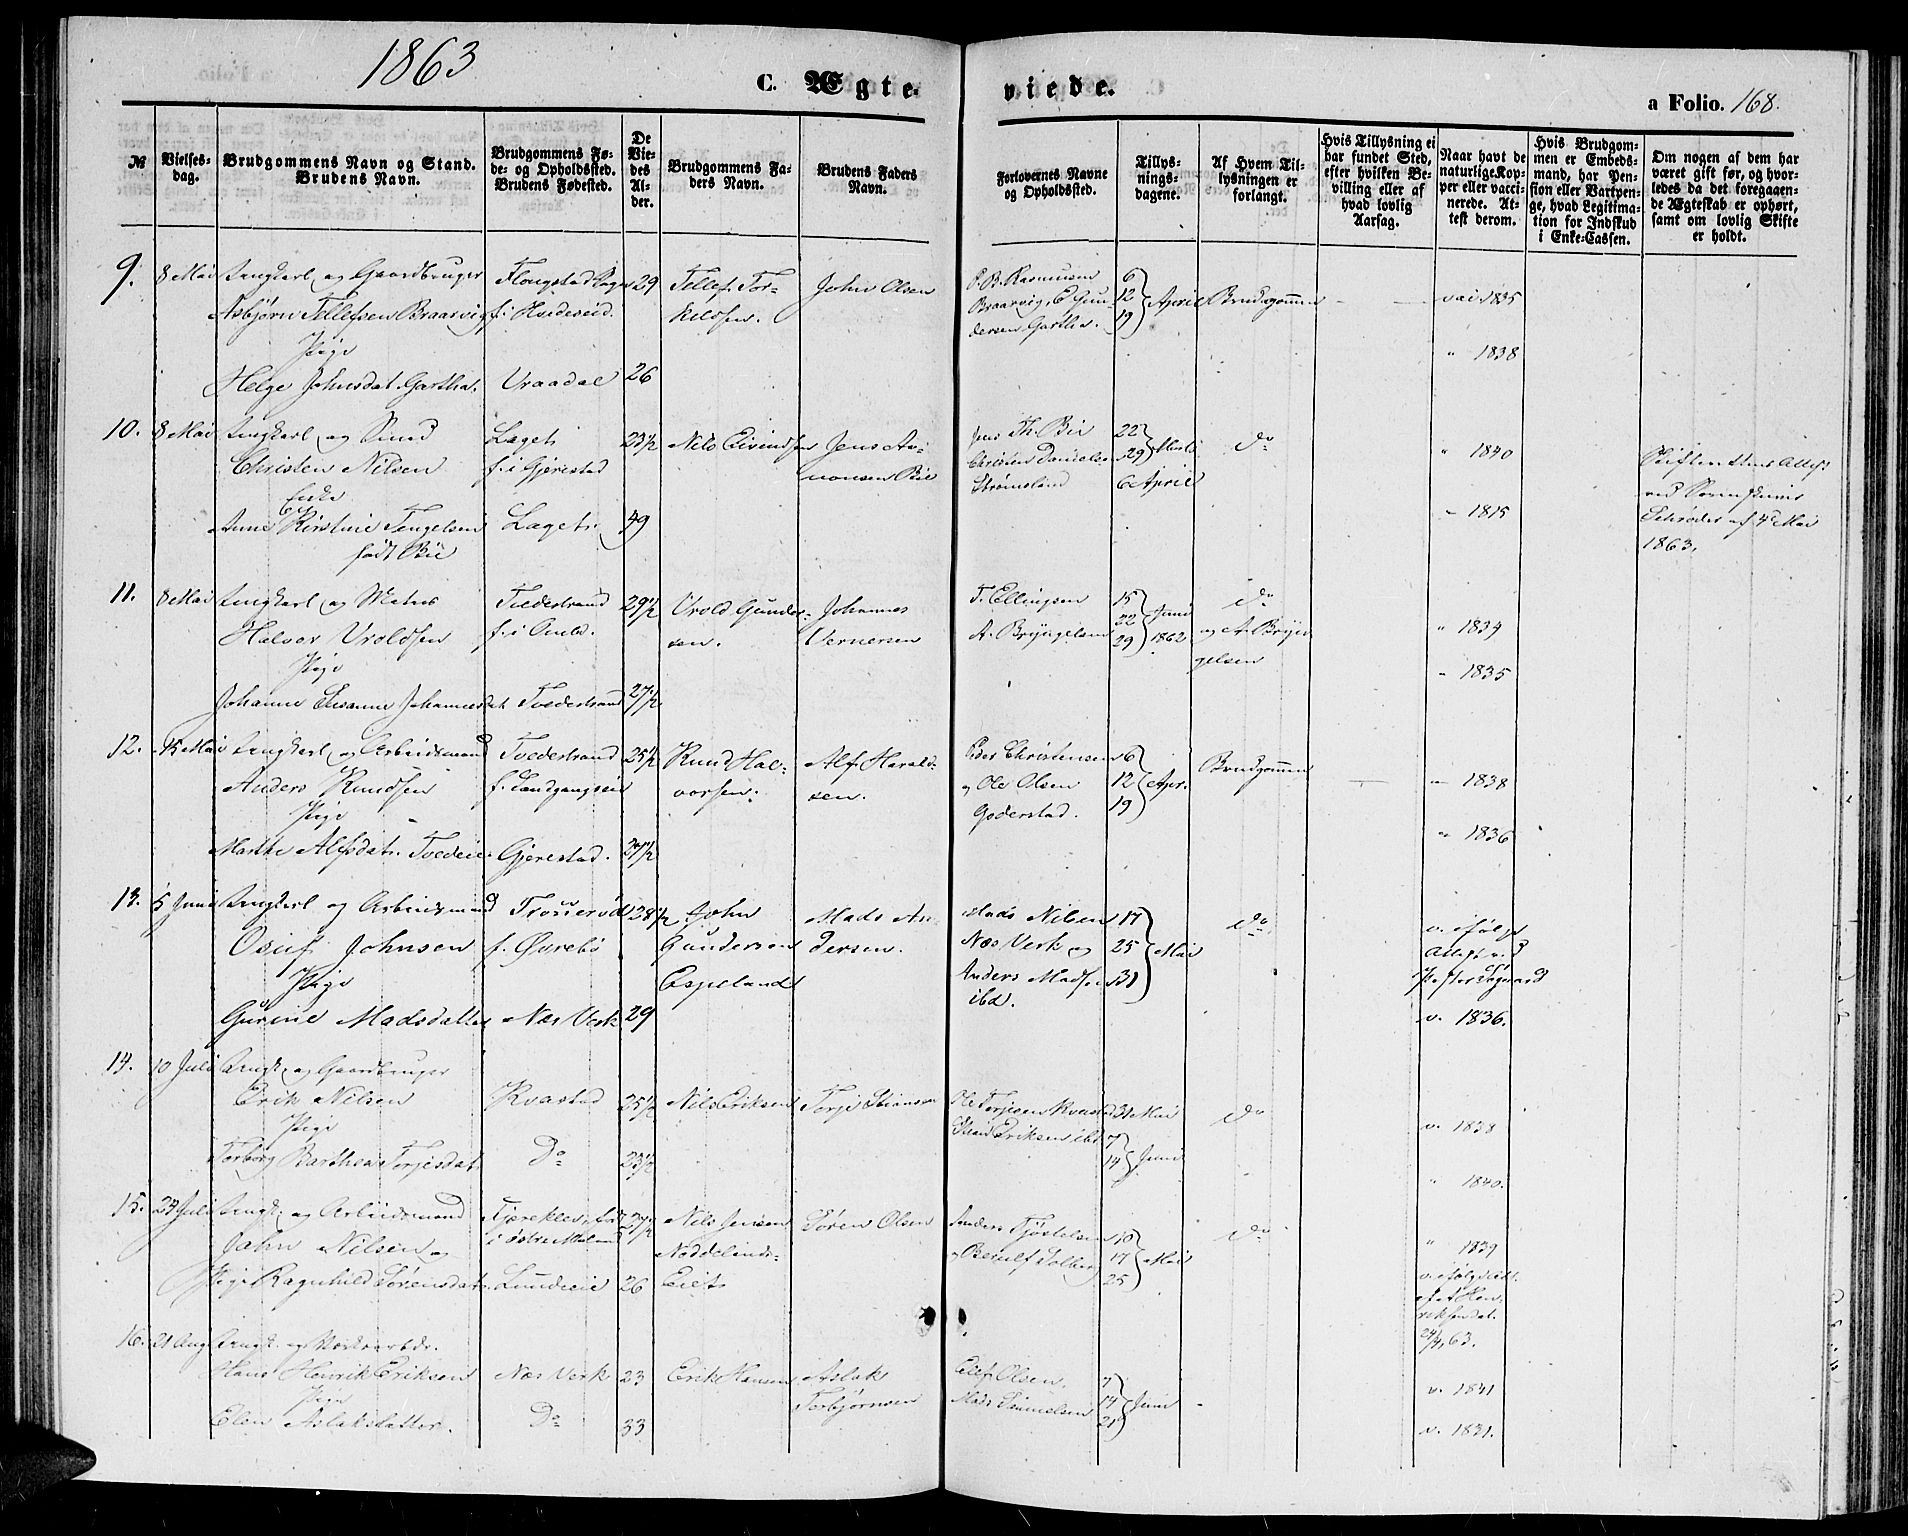 1863
C. Ægte-
viede.
a Folio. 168.
№
Vielses-
dag.
Brudgommens Navn og Stand.
Brudens Navn.
Brudgommens Fø-
de- og Opholdssted.
Brudens Fødested.
De
Vie-
des
Al-
der.
Brudgommens Fa-
ders Navn.
Brudens Faders
Navn.
Forlovernes Navne
og Opholdssted.
Tillys-
nings-
dagene.
Af Hvem Til-
lysningen er
forlangt.
Hvis Tillysning ei
har fundet Sted,
efter hvilken Be-
villing eller af
hvad lovlig
Aarsag.
Naar havt de
naturlige Kop-
per eller vacci-
nerede. At-
test derom.
Hvis Brudgom-
men er Embeds-
mand, har Pen-
sion eller Vartpen-
ge, hvad Legitima-
tion for Indskud
i Enke-Cassen.
Om nogen af dem har
været gift før, og hvor-
ledes da det foregaaen-
de Ægteskab er ophørt,
samt om lovlig Skifte
er holdt.
9. 8 Mai Ungkarl og Gaardbruger
Asbjørn Tellefsen Braarvig
Pige
Helge Johnsdat. Garthar
f. i Hvideseid.
Vraadal
29
26
Tellef Tor-
kildsen.
John Olsen
P. B. Rasmusen
Braarvig, E Gun-
dersen Gartha.
6
12
19
April
Brudgommen
vac. 1835
" 1838
10. 8 Mai Ungkarl og Smed
Christen Nilsen
Enke
Anne Kirstine Tengelsen
født Bie
Laget
f. i Gjerestad
Laget
23½
49
Nils Eivindsen
Jens Aa-
nonsen Bie
Jens Th. Bie
Christen Danielsen
Strømsland
22
29 Marts
6 April
do
" 1840
" 1815
Skiftendens Attest
ved Sorenskriver
Schrøder af 4de Mai
1863.
11. 8 Mai Ungkarl og Matros
Halvor Vroldsen
Pige
Johanne Susanne Johannesdat
Tvedestrand
f. i Omlid.
Tvedestrand
29½
27½
Vrold Gunder-
sen.
Johannes
Vernersen
T. Ellingsen
A. Bryngelsen
15
22
29
Juni
1862
do
og A. Bryn-
gelsen
" 1834
" 1835
12. 15 Mai Ungkarl og Arbeidsmand
Anders Knudsen
Pige
Marthe Alfsdatr. Tvedeie
Tvedestrand
f. Landgangseie
Gjerestad.
25½
27½
Knud Hal-
vorsen.
Alf Harald-
sen.
Peder Christensen
og Ole Olsen
Goderstad.
6
12
19
Apr.
Brudgommen
" 1838
" 1836
13. 5 Juni Ungkarl og Arbeidsmand
Osuf Johnsen
Pige
Gurine Madsdatter
f. Øvrebø
Næs Verk
28½
29
John
Gundersen
Espeland
Mads An-
dersen.
Mads Nilsen
Næs Verk og
Anders Madsen
ibd.
17
25
31
Mai
do
v. ifølge
Attest v.
v. 1836.
14. 10 Juli Ungk. og Gaardbruger
Erik Nilsen
Pige
Torborg Barthea Torjesdat.
Kvastad
Do
25½
23½
Nils Eriksen
Torje Stiansen
Ole Torjesen Kvastad
Eriksen ibd
31 Mai
7
14
Juni
do
v. 1838
" 1840.
15. 24 Juli Ungk. og Arbeidsmand
Jahn Nilsen og
Pige Ragnhild Sørensdat.
Kjereklev, født
i østre Moland
Lundeeie
27½
26
Nils Jensen
Søren Olsen
Anders Kjøstelsen
og Berulf Solberg
10
17
25
Mai
do
" 1839
v. ifølge
24/4 63.
16. 21 Aug Ungk. og Værksarbdr.
Hans Henrik Eriksen
Pige
Elen Aslaksdatter.
Næs Verk
Do
23
33
Erik Hansen
Aslak
Torbjørnsen
Ellef Olsen.
Mads Samuelsen
7
14
21
Juni
v. 1841
v. 1831.